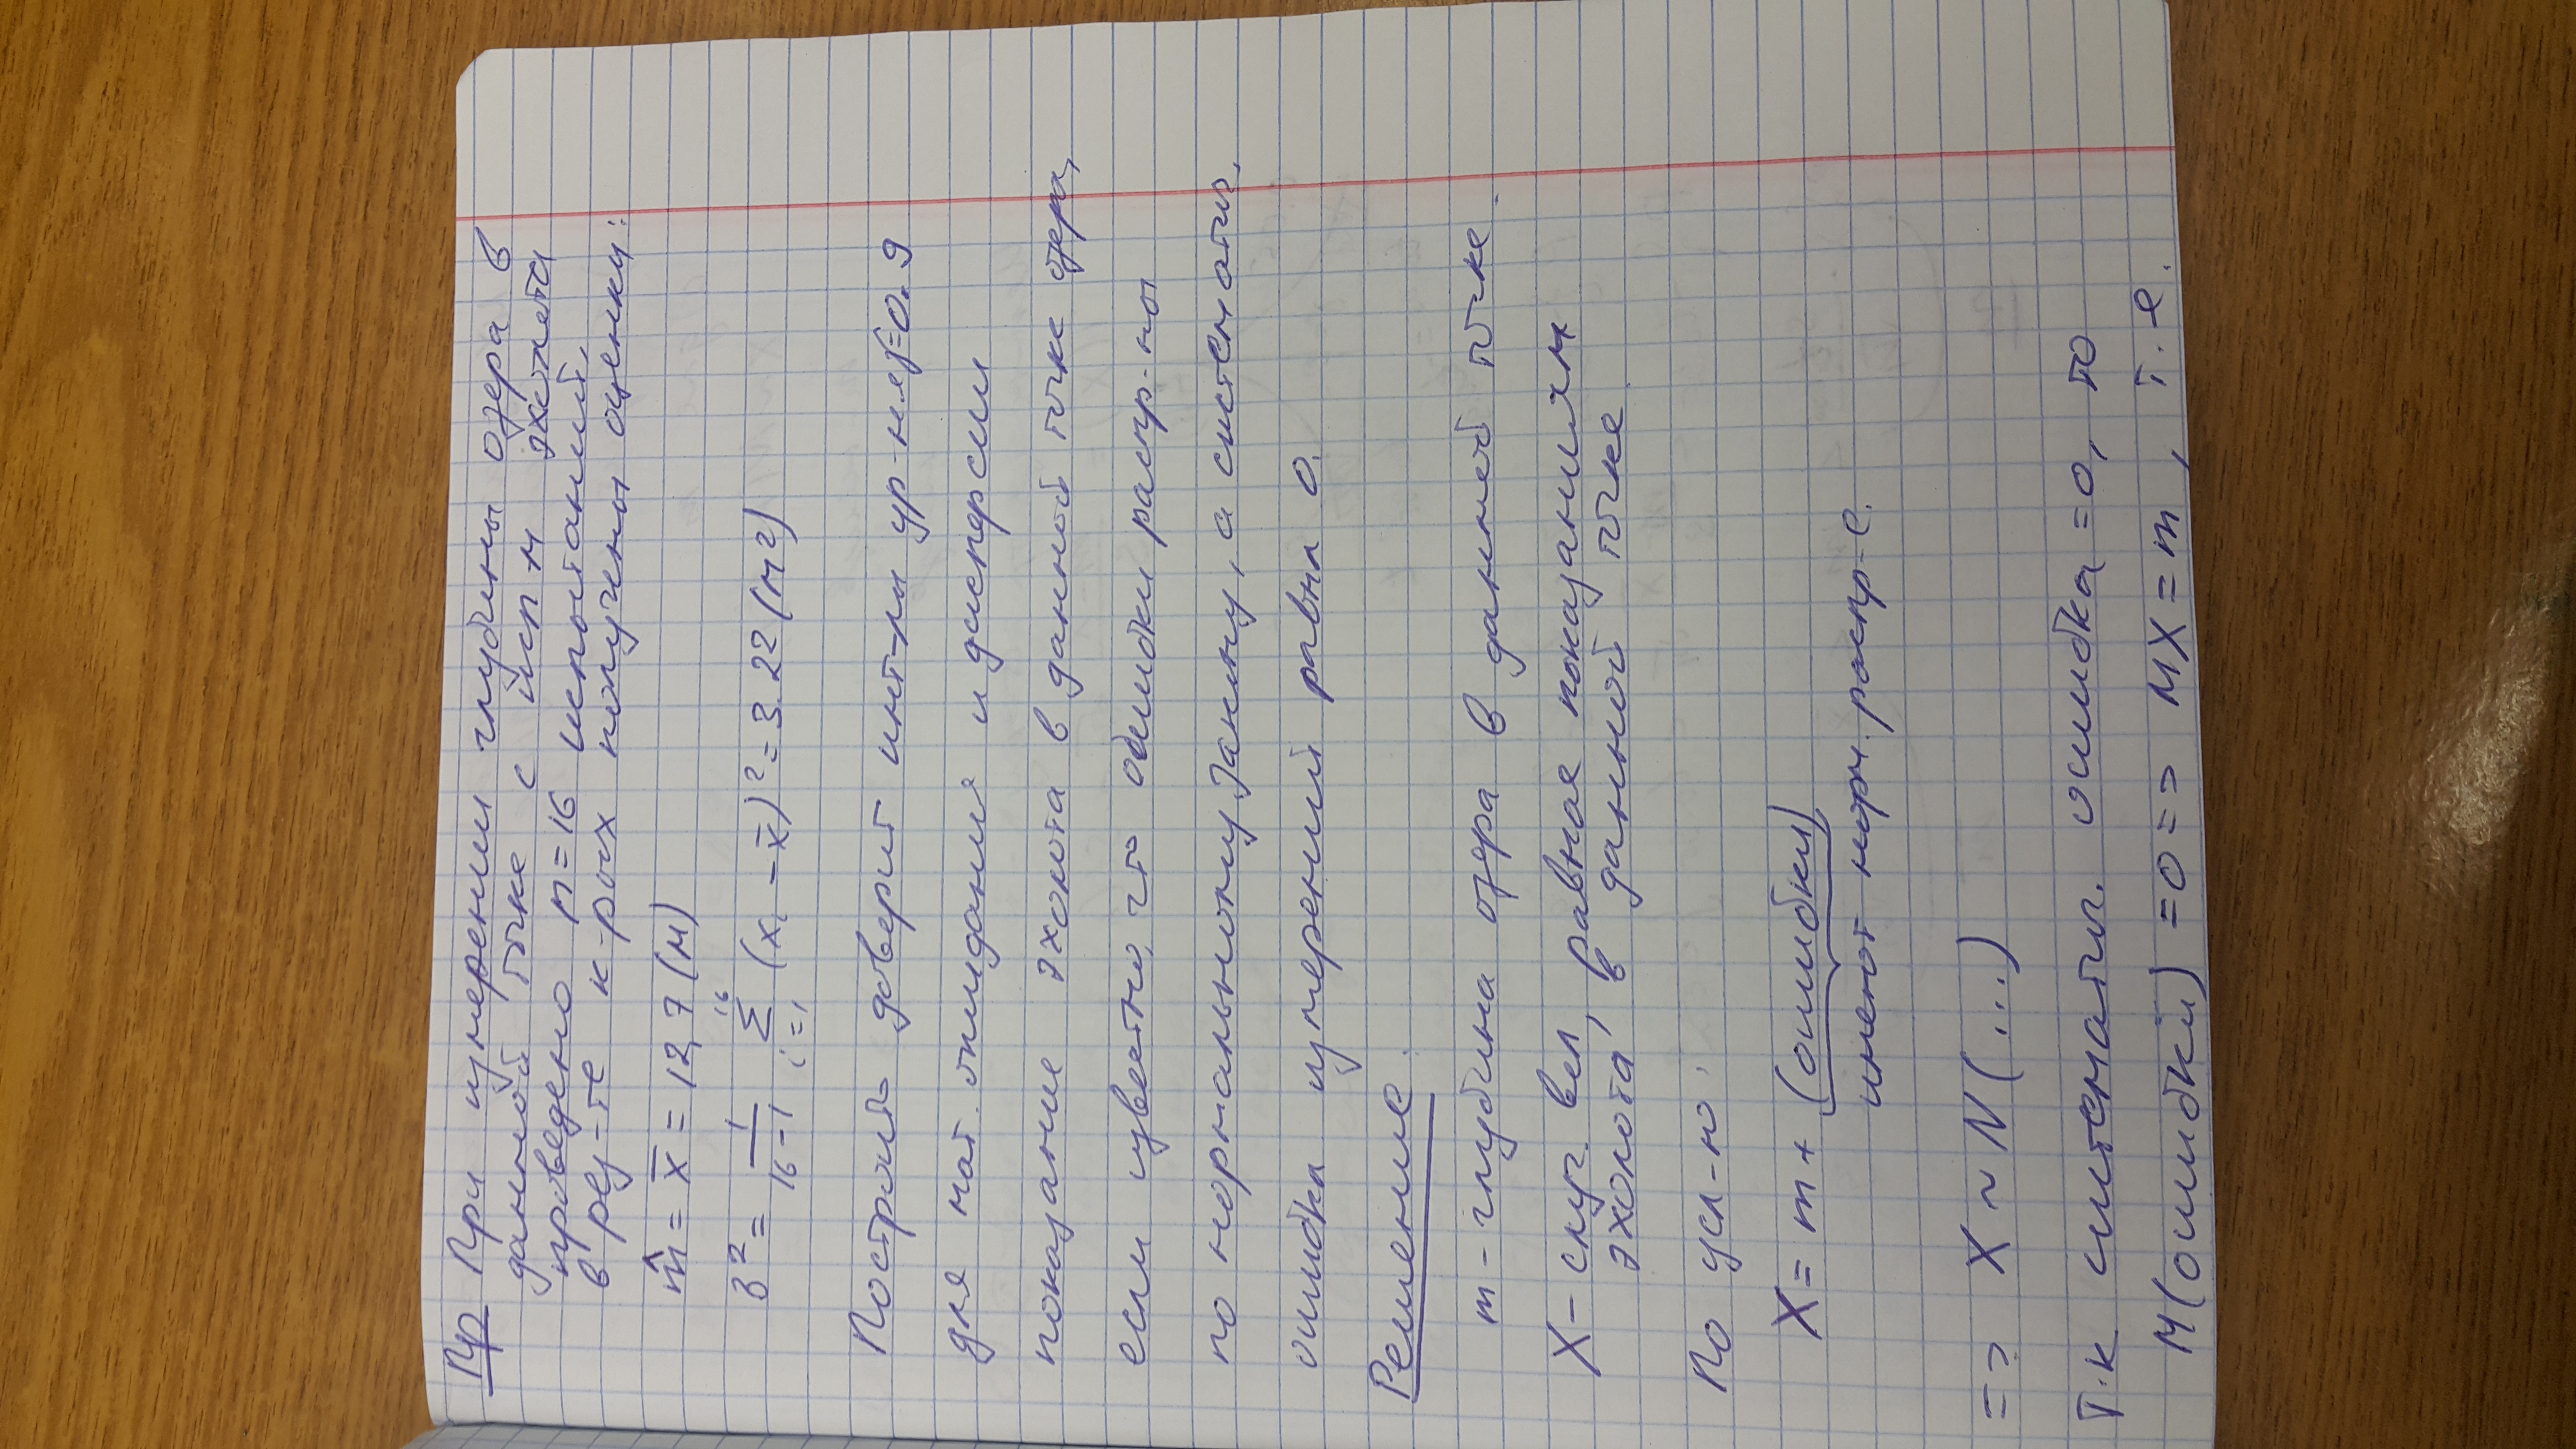 Пр При измерении глубины озера в
данной точке с исп-м эхолота
проведено n=16 испытаний,
в рез-те к-рых получены оценки:
m̂ = x̄ = 12,7 (м)
S² = 1/(16-1) Σ_{i=1}^{16} (xᵢ - x̄)² = 3.22 (м²)
Построить доверит инт-лы ур-ня γ=0.9
для мат. ожидания и дисперсии
показание эхолота в данной точке озера,
если известно, что ошибки распр-ны
по нормальному закону, а систематич.
ошибка измерений равна 0.
Решение.
m - глубина озера в данной точке.
X - случ. вел, равная показаниям
эхолота в данной точке.
По усл-ю:
X = m + (ошибки)
имеют норм. распр-е.
=> X ~ N(...)
Т.к систематич. ошибка =0, то
M(ошибки) =0 => MX = m, т.е.